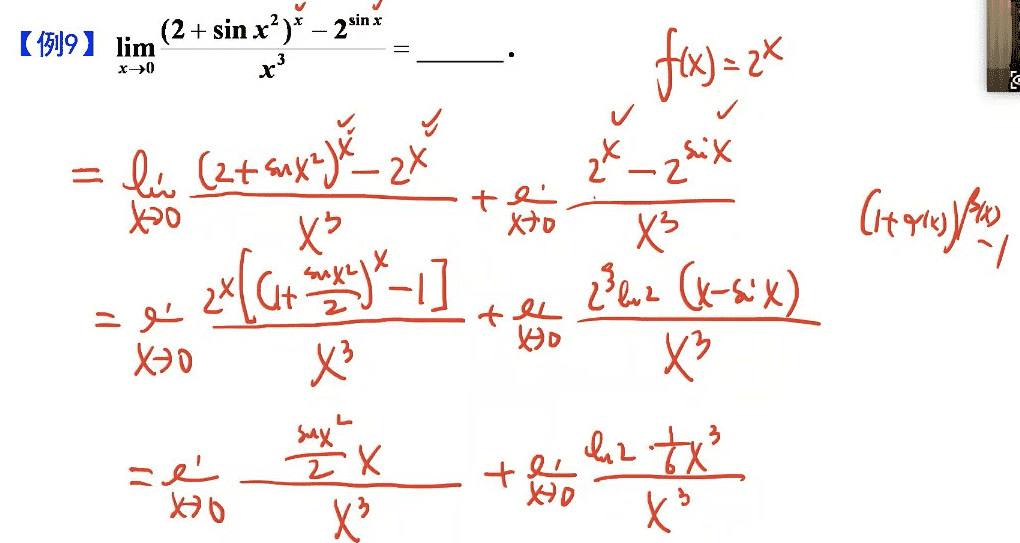 【例9】 lim_{x→0} ((2 + sin x²)^x − 2^{sin x}) / x³ = ______ .
f(x) = 2^x
= lim_{x→0} ((2 + sin x²)^x − 2^x) / x³ + lim_{x→0} (2^x − 2^{sin x}) / x³
(1 + α(x))^{β(x)} − 1
= lim_{x→0} 2^x[(1 + sin x²/2)^x − 1] / x³ + lim_{x→0} 2^ξ ln 2 (x − sin x) / x³
= lim_{x→0} (sin x²/2 x) / x³ + lim_{x→0} (ln 2 · 1/6 x³) / x³